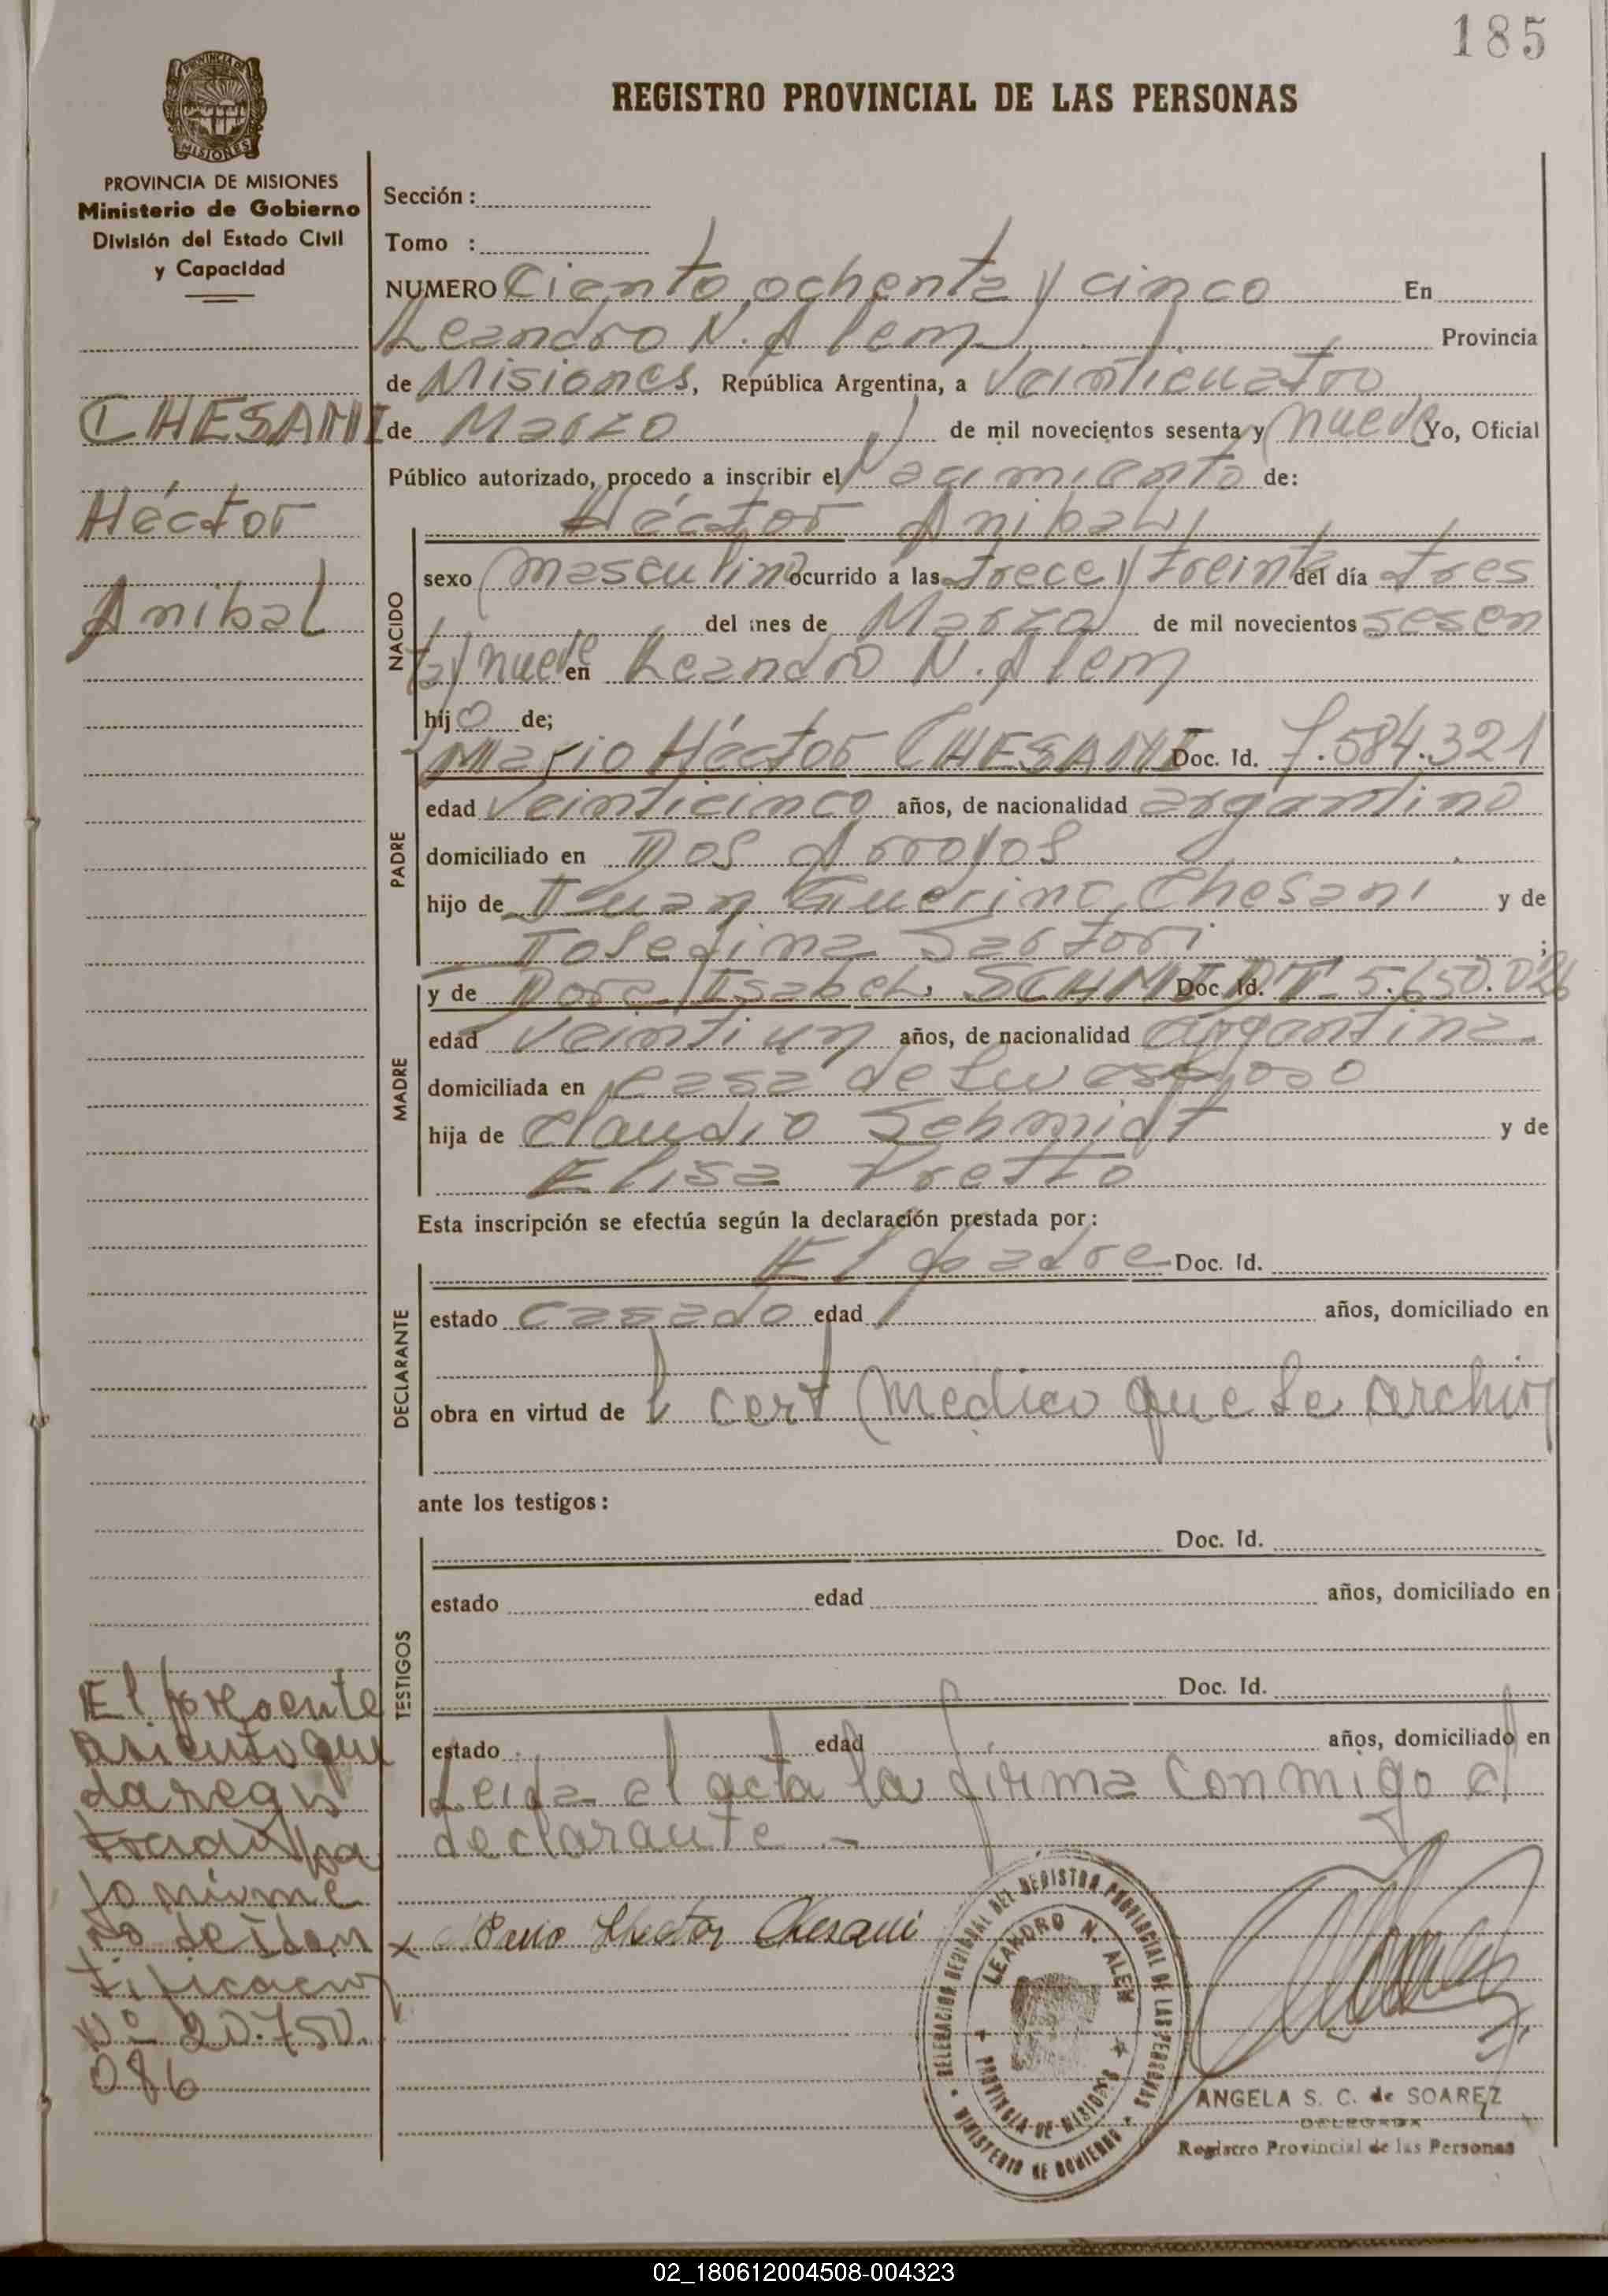 185
REGISTRO PROVINCIAL DE LAS PERSONAS
PROVINCIA DE MISIONES
MISIONES
PROVINCIA DE MISIONES
Ministerio de Gobierno
División del Estado Civil
y Capacidad
CHESANI
Héctor
Anibal
Sección :
Tomo :
NUMERO Ciento ochenta y cinco En
Leandro N. Alem Provincia
de Misiones, República Argentina, a Veinticuatro
de Marzo de mil novecientos sesenta y nueve Yo, Oficial
Público autorizado, procedo a inscribir el Nacimiento de:
Héctor Anibal
NACIDO
sexo masculino ocurrido a las trece y treinta del día tres
del mes de Marzo de mil novecientos sesen
ta y nueve en Leandro N. Alem
hijo de;
PADRE
Mario Héctor CHESANI Doc. Id. 7.584.321
edad veinticinco años, de nacionalidad argentino
domiciliado en Dos Arroyos
hijo de Juan Guerino Chesani y de
Josefina Sartori ;
MADRE
y de Dora Isabel SCHMIDT Doc. Id. 5.650.026
edad Veintiun años, de nacionalidad argentina
domiciliada en casa de su esposo
hija de Claudio Schmidt y de
Elisa Pretto
Esta inscripción se efectúa según la declaración prestada por:
DECLARANTE
El padre Doc. Id.
estado casado edad años, domiciliado en
obra en virtud de cert medico que se archiva
ante los testigos:
TESTIGOS
Doc. Id.
estado edad años, domiciliado en
Doc. Id.
estado edad años, domiciliado en
Leida el acta la firma conmigo el
declarante -
El presente
asiento que
da regis
trado ba
jo núme
ro de iden
tificacion
Nº 20.750.
086
x Mario Hector Chesani
DELEGACION REGIONAL DEL REGISTRO PROVINCIAL DE LAS PERSONAS
MINISTERIO DE GOBIERNO
LEANDRO N. ALEM
PROVINCIA DE MISIONES
ANGELA S. C. de SOAREZ
DELEGADA
Registro Provincial de las Personas
02_180612004508-004323